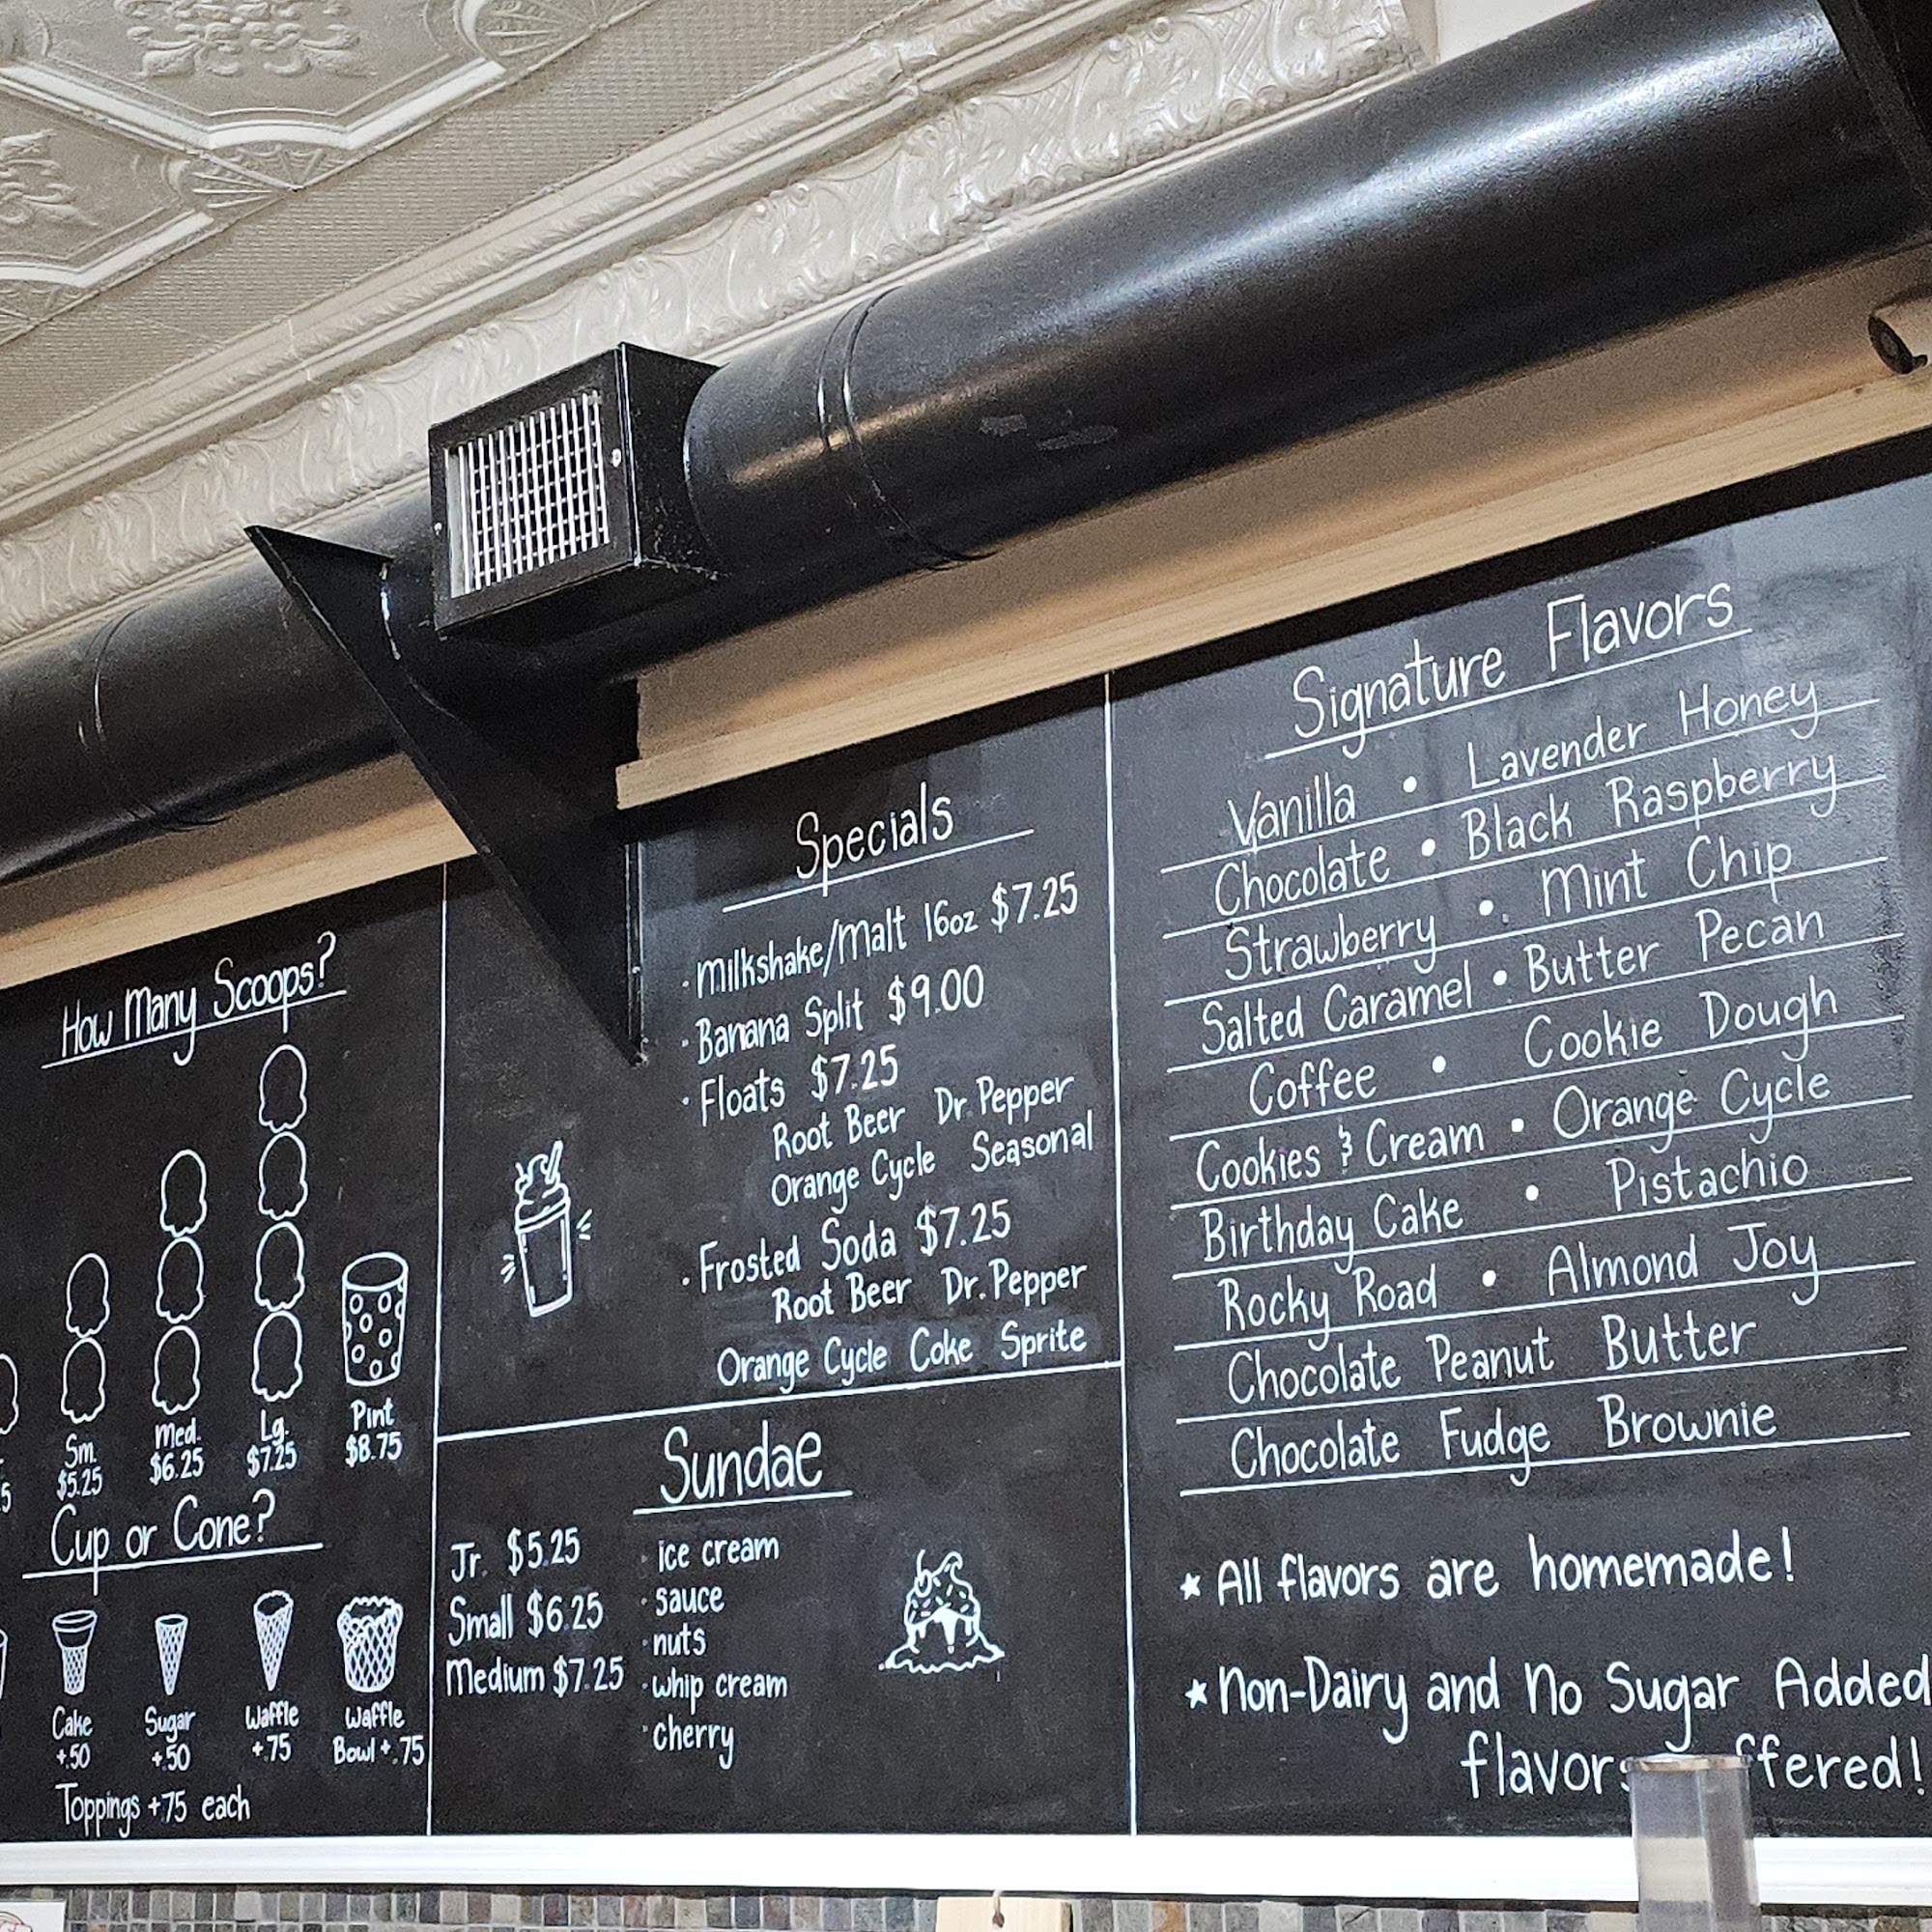 How Many Scoops?
Sm. Med. Lg. Pint
$5.25 $6.25 $7.25 $8.75
Cup or Cone?
Cake Sugar Waffle Waffle
+.50 +.50 +.75 Bowl +.75
Toppings +75 each
Specials
· Milkshake/Malt 16oz $7.25
· Banana Split $9.00
· Floats $7.25
Root Beer Dr. Pepper
Orange Cycle Seasonal
· Frosted Soda $7.25
Root Beer Dr. Pepper
Orange Cycle Coke Sprite
Sundae
Jr. $5.25
Small $6.25
Medium $7.25
· ice cream
· sauce
· nuts
· whip cream
· cherry
Signature Flavors
Vanilla • Lavender Honey
Chocolate • Black Raspberry
Strawberry • Mint Chip
Salted Caramel • Butter Pecan
Coffee • Cookie Dough
Cookies & Cream • Orange Cycle
Birthday Cake • Pistachio
Rocky Road • Almond Joy
Chocolate Peanut Butter
Chocolate Fudge Brownie
★ All flavors are homemade!
★ Non-Dairy and No Sugar Added
flavors ffered!